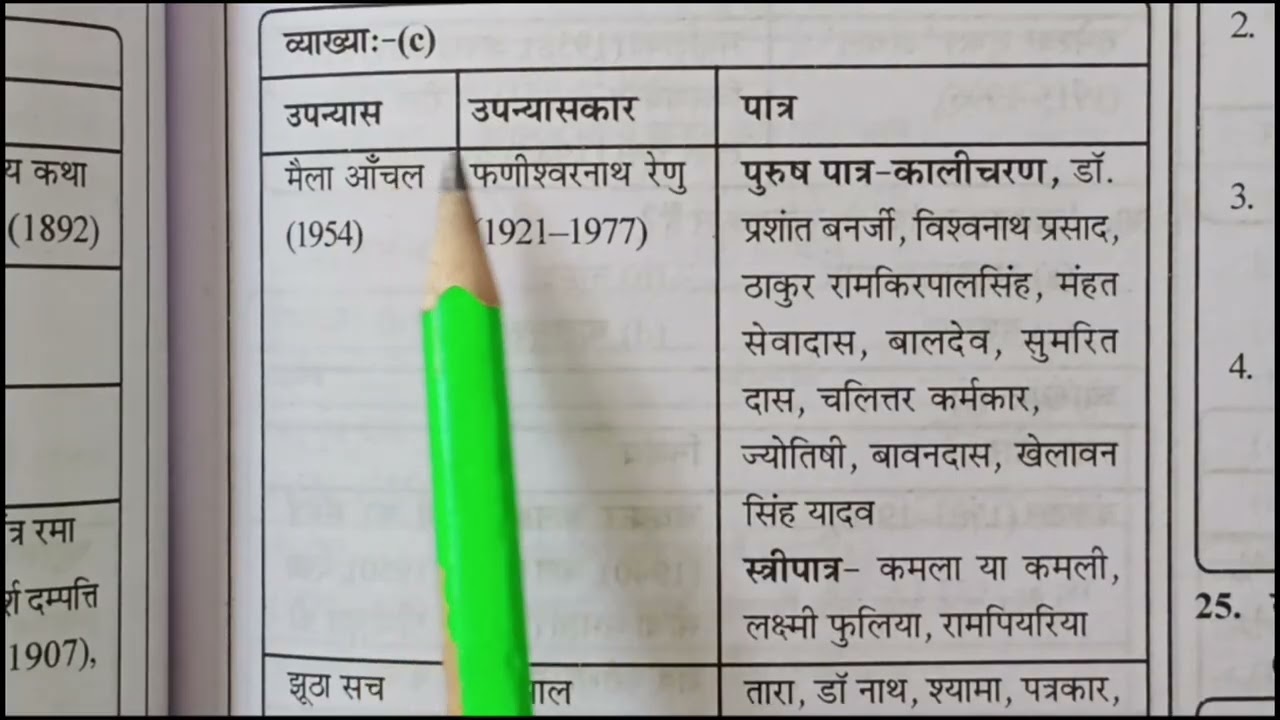 व्याख्याः-(c)
उपन्यास उपन्यासकार पात्र
मैला आँचल फणीश्वरनाथ रेणु पुरुष पात्र-कालीचरण, डॉ.
(1954) (1921–1977) प्रशांत बनर्जी, विश्वनाथ प्रसाद,
ठाकुर रामकिरपालसिंह, मंहत
सेवादास, बालदेव, सुमरित
दास, चलित्तर कर्मकार,
ज्योतिषी, बावनदास, खेलावन
सिंह यादव
स्त्रीपात्र- कमला या कमली,
लक्ष्मी फुलिया, रामपियरिया
झूठा सच तारा, डॉ नाथ, श्यामा, पत्रकार,
य कथा
(1892)
रमा
दम्पत्ति
1907),
2.
3.
4.
25.